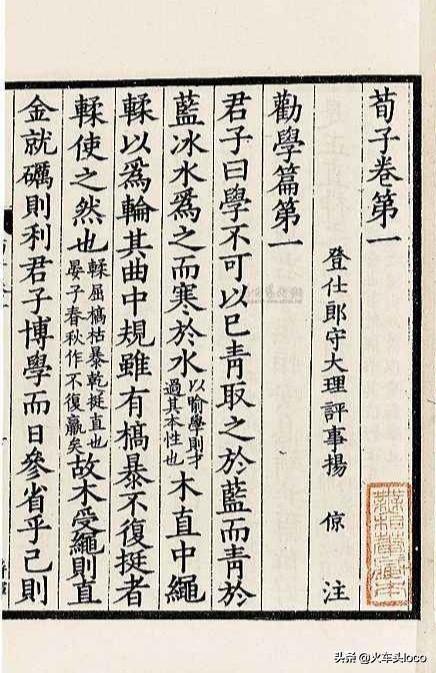 荀子卷第一
登仕郎守大理評事楊 倞 注
勸學篇第一
君子曰學不可以已青取之於藍而青於
藍冰水爲之而寒於水以喻學則才過其本性也木直中繩
輮以爲輪其曲中規雖有槁暴不復挺者
輮使之然也輮屈槁枯暴乾挺直也晏子春秋作不復羸矣故木受繩則直
金就礪則利君子博學而日參省乎己則
头条 @火车头loco